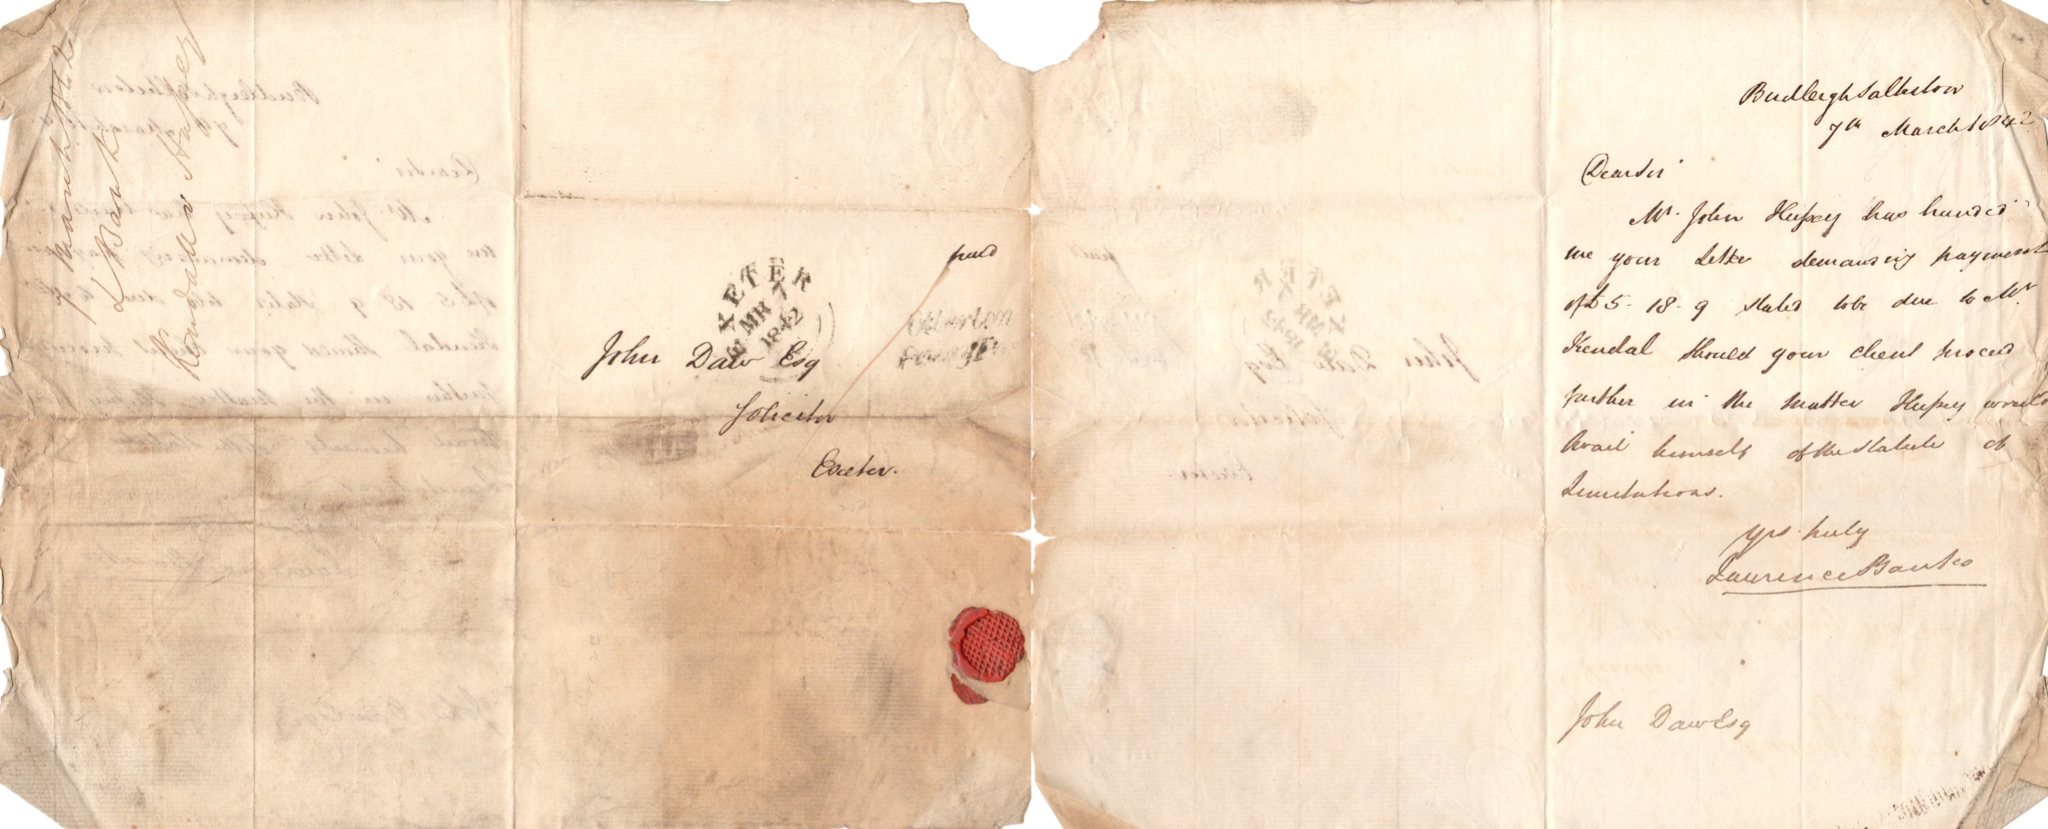 7 March 1842
L Banks
Kendall v Hussey
paid
EXETER
MR 7
1842
Otterton
Penny Post
John Daw Esq
Solicitor
Exeter.
Budleigh Salterton
7th March 1842
Dear Sir
Mr. John Hussey has handed
me your Letter demanding payment
of £5-18-9 stated to be due to Mr
Kendal Should your client proceed
further in the matter Hussey would
avail himself of the Statute of
Limitations.
Yrs truly
Lawrence Banks
John Daw Esq